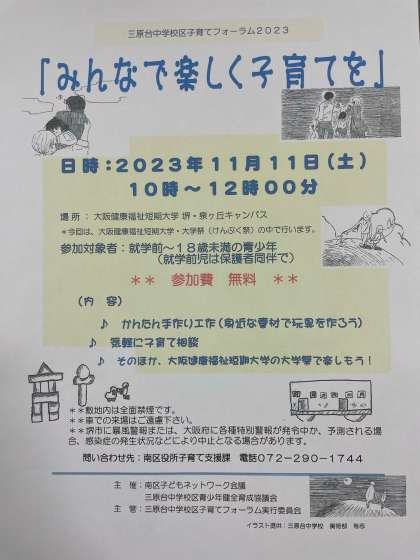 三原台中学校区子育てフォーラム2023
「みんなで楽しく子育てを」
日時：2023年11月11日(土)
10時～12時00分
場所：大阪健康福祉短期大学 堺・泉ヶ丘キャンパス
＊今回は、大阪健康福祉短期大学・大学祭（けんぷく祭）の中で行います。
参加対象者：就学前～18歳未満の青少年
（就学前児は保護者同伴で）
＊＊ 参加費 無料 ＊＊
（内 容）
♪ かんたん手作り工作（身近な素材で玩具を作ろう）
♪ 気軽に子育て相談
♪ そのほか、大阪健康福祉短期大学の大学祭で楽しもう！
＊＊敷地内は全面禁煙です。
＊＊車での来場はご遠慮下さい。
＊＊堺市に暴風警報または、大阪府に各種特別警報が発令中か、予測される場
合、感染症の発生状況などにより中止となる場合があります。
問い合わせ先：南区役所子育て支援課 電話072-290-1744
主催：南区子どもネットワーク会議
三原台中学校区青少年健全育成協議会
主管：三原台中学校区子育てフォーラム実行委員会
イラスト提供：三原台中学校 美術部 有志